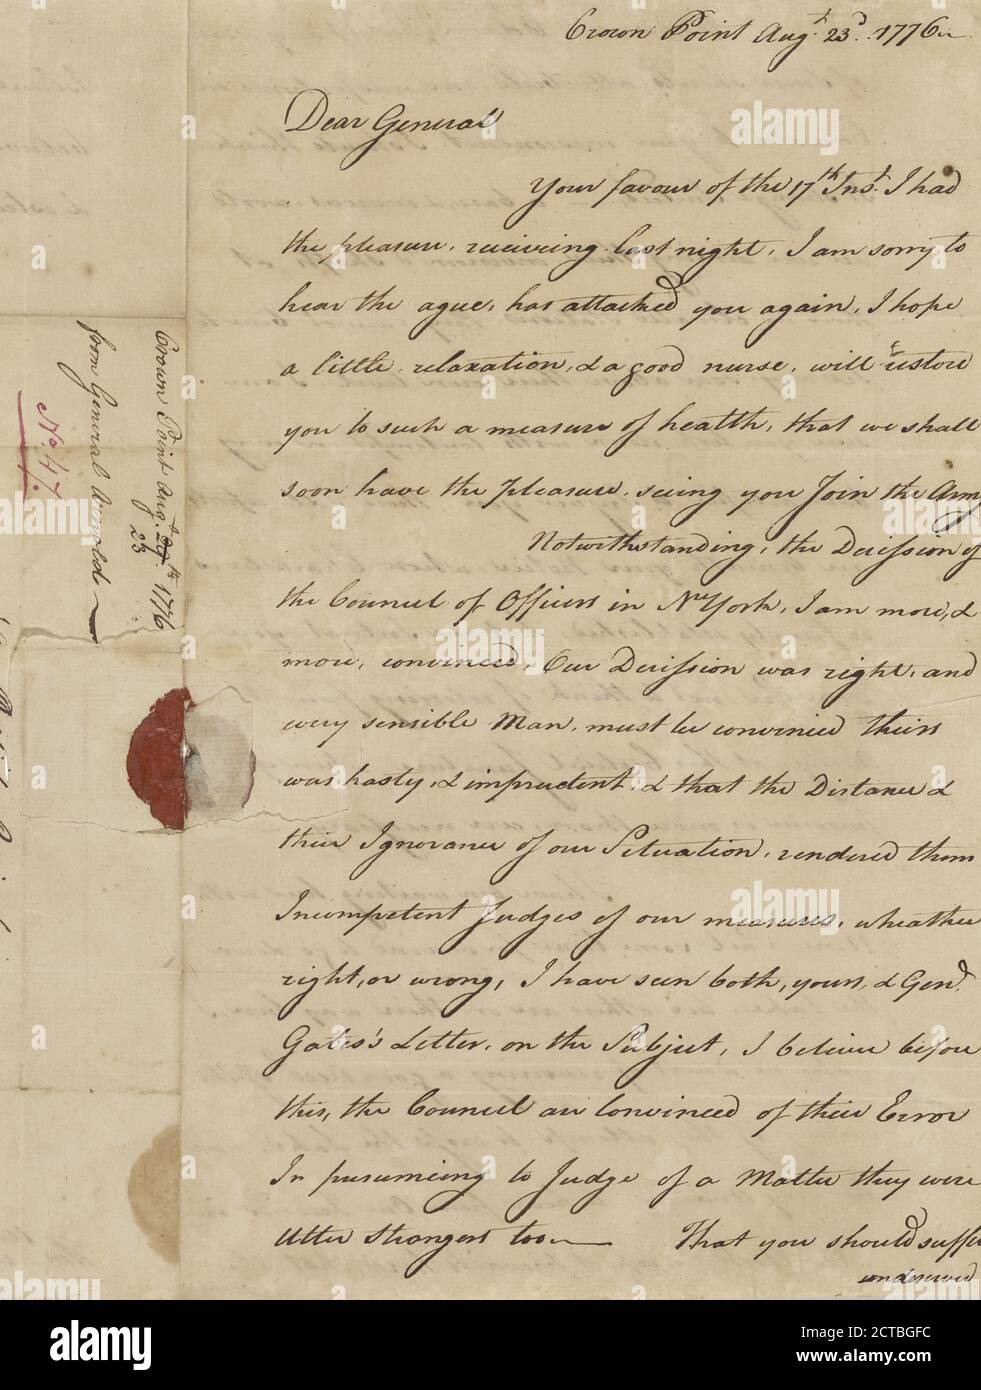 Crown Point Augt. 23d. 1776
Dear General
Your favour of the 17th Inst. I had
the pleasure, receiveing last night, I am sorry to
hear the ague, has attacked you again, I hope
a little relaxation, & a good nurse, will restore
you to such a measure of health, that we shall
soon have the pleasure, seeing you Join the Army
Notwithstanding, the Decission of
the Councel of Officers in N York, I am more, &
more, convinced, Our Decission was right, and
every sensible Man, must be convinced theirs
was hasty, & imprudent, & that the Distance &
their Ignorance of our Situation, rendered them
Incompetent Judges of our measures, wheather
right, or wrong, I have seen both, yours, & Genl.
Gates's Letter, on the Subject, I believe before
this, the Councel are Convinced of their Error
In presumeing to Judge of a Matter they were
Utter Strangers too— That you should suffer
undeserved
Crown Point Augt. 23 1776
from General Arnold
No. 47.
alamy
alamy
alamy
a
Image ID: 2CTBGFC
www.alamy.com